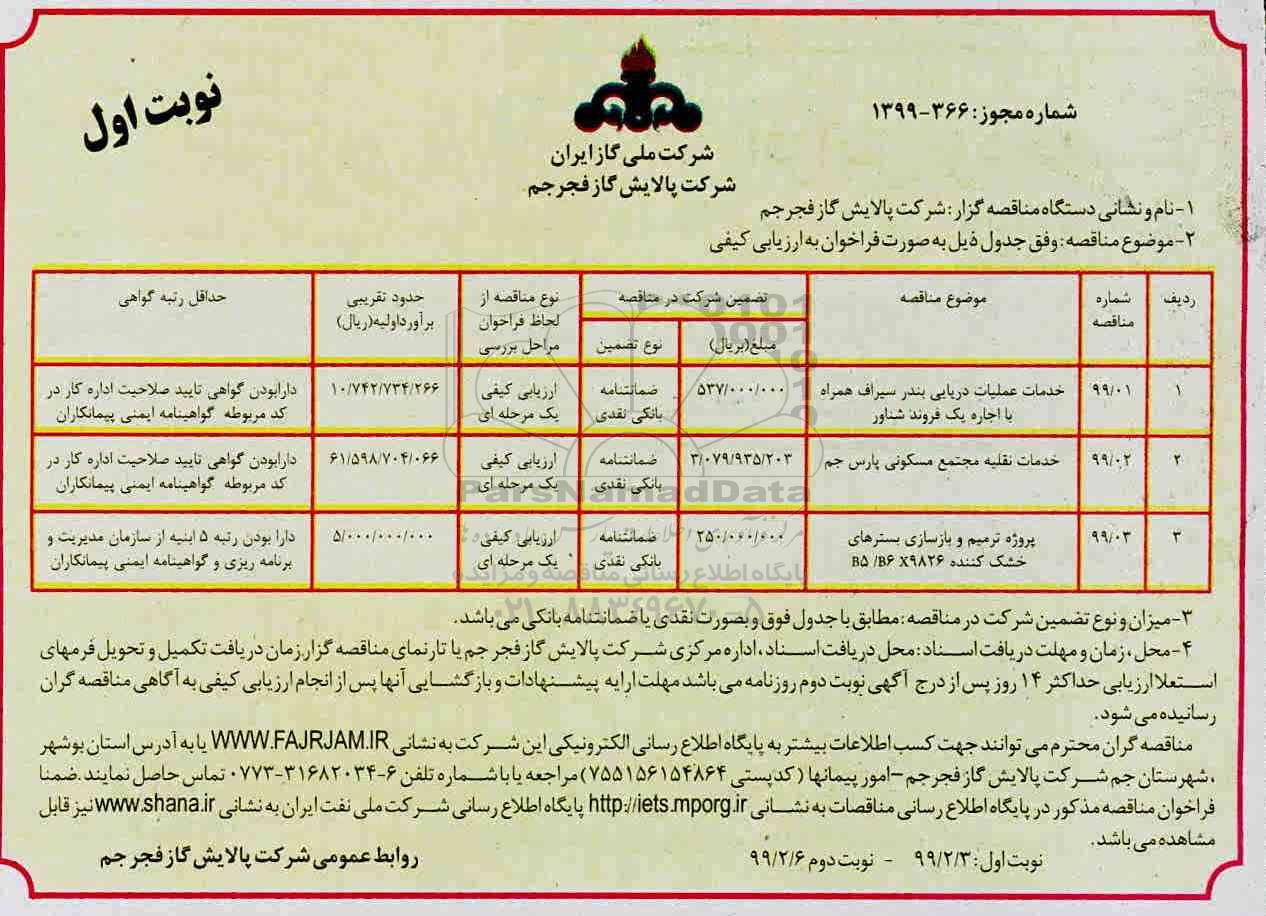 شماره مجوز: ۳۶۶-۱۳۹۹
نوبت اول
شرکت ملی گاز ایران
شرکت پالایش گاز فجر جم
۱-نام و نشانی دستگاه مناقصه گزار: شرکت پالایش گاز فجر جم
۲-موضوع مناقصه: وفق جدول ذیل به صورت فراخوان به ارزیابی کیفی
ردیف | شماره مناقصه | موضوع مناقصه | تضمین شرکت در مناقصه | نوع مناقصه از لحاظ فراخوان مراحل بررسی | حدود تقریبی برآورداولیه(ریال) | حداقل رتبه گواهی
مبلغ(بریال) | نوع تضمین
۱ | ۹۹/۰۱ | خدمات عملیات دریایی بندر سیراف همراه با اجاره یک فروند شناور | ۵۳۷/۰۰۰/۰۰۰ | ضمانتنامه بانکی نقدی | ارزیابی کیفی یک مرحله ای | ۱۰/۷۴۲/۷۳۴/۲۶۶ | دارابودن گواهی تایید صلاحیت اداره کار در کد مربوطه گواهینامه ایمنی پیمانکاران
۲ | ۹۹/۰۲ | خدمات نقلیه مجتمع مسکونی پارس جم | ۳/۰۷۹/۹۳۵/۲۰۳ | ضمانتنامه بانکی نقدی | ارزیابی کیفی یک مرحله ای | ۶۱/۵۹۸/۷۰۴/۰۶۶ | دارابودن گواهی تایید صلاحیت اداره کار در کد مربوطه گواهینامه ایمنی پیمانکاران
۳ | ۹۹/۰۳ | پروژه ترمیم و بازسازی بسترهای خشک کننده B۵ /B۶ X۹۸۲۶ | ۲۵۰/۰۰۰/۰۰۰ | ضمانتنامه بانکی نقدی | ارزیابی کیفی یک مرحله ای | ۵/۰۰۰/۰۰۰/۰۰۰ | دارا بودن رتبه ۵ ابنیه از سازمان مدیریت و برنامه ریزی و گواهینامه ایمنی پیمانکاران
ParsNamadData
پایگاه اطلاع رسانی مناقصه و مزایده
۰۲۱-۸۸۳۴۹۶۷۰-۵
۳-میزان و نوع تضمین شرکت در مناقصه: مطابق با جدول فوق و بصورت نقدی یا ضمانتنامه بانکی می باشد.
۴-محل، زمان و مهلت دریافت اسناد: محل دریافت اسناد، اداره مرکزی شرکت پالایش گاز فجر جم یا تارنمای مناقصه گزار.زمان دریافت تکمیل و تحویل فرمهای
استعلا ارزیابی حداکثر ۱۴ روز پس از درج آگهی نوبت دوم روزنامه می باشد مهلت ارایه پیشنهادات و بازگشایی آنها پس از انجام ارزیابی کیفی به آگاهی مناقصه گران
رسانیده می شود.
مناقصه گران محترم می توانند جهت کسب اطلاعات بیشتر به پایگاه اطلاع رسانی الکترونیکی این شرکت به نشانی WWW.FAJRJAM.IR یا به آدرس استان بوشهر
،شهرستان جم شرکت پالایش گاز فجر جم –امور پیمانها (کدپستی ۷۵۵۱۵۶۱۵۴۸۶۴) مراجعه یا با شماره تلفن ۶-۳۱۶۸۲۰۳۴-۰۷۷۳ تماس حاصل نمایند.ضمنا
فراخوان مناقصه مذکور در پایگاه اطلاع رسانی مناقصات به نشانی http://iets.mporg.ir پایگاه اطلاع رسانی شرکت ملی نفت ایران به نشانی www.shana.ir نیز قابل
مشاهده می باشد.
نوبت اول: ۹۹/۲/۳ - نوبت دوم ۹۹/۲/۶
روابط عمومی شرکت پالایش گاز فجر جم